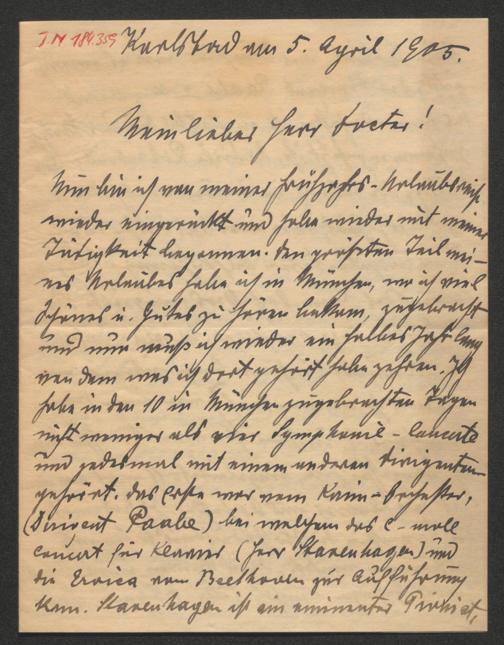 I.N 184.359
Karlsbad am 5. April 1905.
Mein lieber Herr Doctor!
Nun bin ich von meiner Frühjahrs-Urlaubsreise
wieder eingerückt und habe wieder mit meiner
Tätigkeit begonnen. Den größten Teil mei-
nes Urlaubes habe ich in München, wo ich viel
Schönes u. Gutes zu hören bekam, zugebracht
und nun muß ich wieder ein halbes Jahr lang
von dem was ich dort gehört habe zehren. Ich
habe in den 10 in München zugebrachten Tagen
nicht weniger als vier Symphonie-Concerte
und jedesmal mit einem anderen Dirigenten
gehört. Das erste war vom Kaim-Orchester,
(Dirigent Raabe) bei welchem das C-moll
Concert für Klavier (Herr Stavenhagen) und
die Eroica von Beethoven zur Aufführung
kam. Stavenhagen ist ein eminenter Pianist,